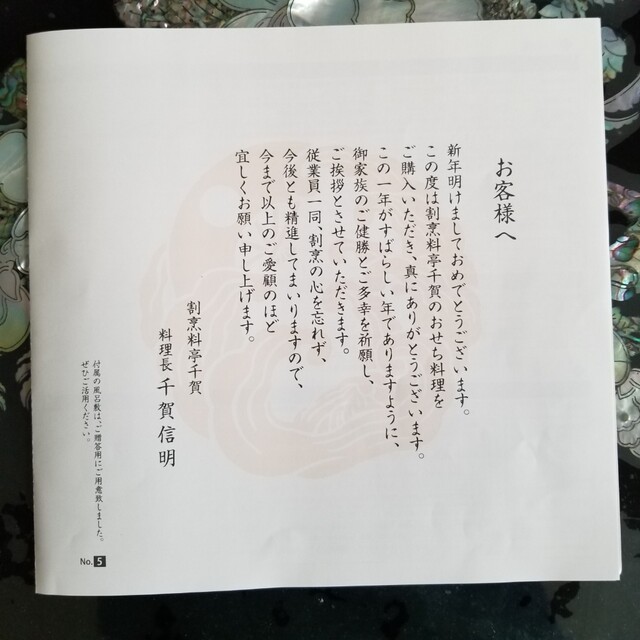 お客様へ
新年明けましておめでとうございます。
この度は割烹料亭千賀のおせち料理を
ご購入いただき、真にありがとうございます。
この一年がすばらしい年でありますように、
御家族のご健勝とご多幸を祈願し、
ご挨拶とさせていただきます。
従業員一同、割烹の心を忘れず、
今後とも精進してまいりますので、
今まで以上のご愛顧のほど
宜しくお願い申し上げます。
割烹料亭千賀
料理長 千賀信明
付属の風呂敷は、ご贈答用にご用意致しました。
ぜひご活用ください。
No.5